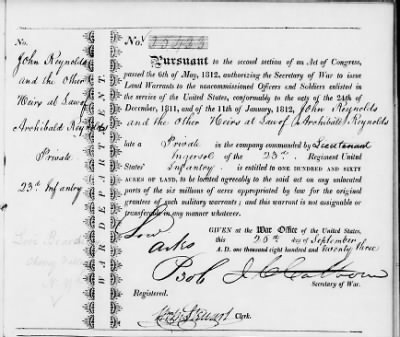 No.
John Reynolds
and the Other
Heirs at Law of
Archibald Reynolds
Private
23d Infantry
WAR DEPARTMENT.
No.
Pursuant to the second section of an Act of Congress,
passed the 6th of May, 1812, authorizing the Secretary of War to issue
Land Warrants to the noncommissioned Officers and Soldiers enlisted in
the service of the United States, conformably to the acts of the 24th of
December, 1811, and of the 11th of January, 1812, John Reynolds
and the other Heirs at Law of Archibald Reynolds
late a Private in the company commanded by Lieutenant
Ingersol of the 23d. Regiment United
States' Infantry is entitled to ONE HUNDRED AND SIXTY
ACRES OF LAND, to be located agreeably to the said act on any unlocated
parts of the six millions of acres appropriated by law for the original
grantees of such military warrants; and this warrant is not assignable or
transferable in any manner whatever.
GIVEN at the War Office of the United States,
this 26th day of September
A. D. one thousand eight hundred and twenty three
J. C. Calhoun
Secretary of War.
Registered.
Clerk.